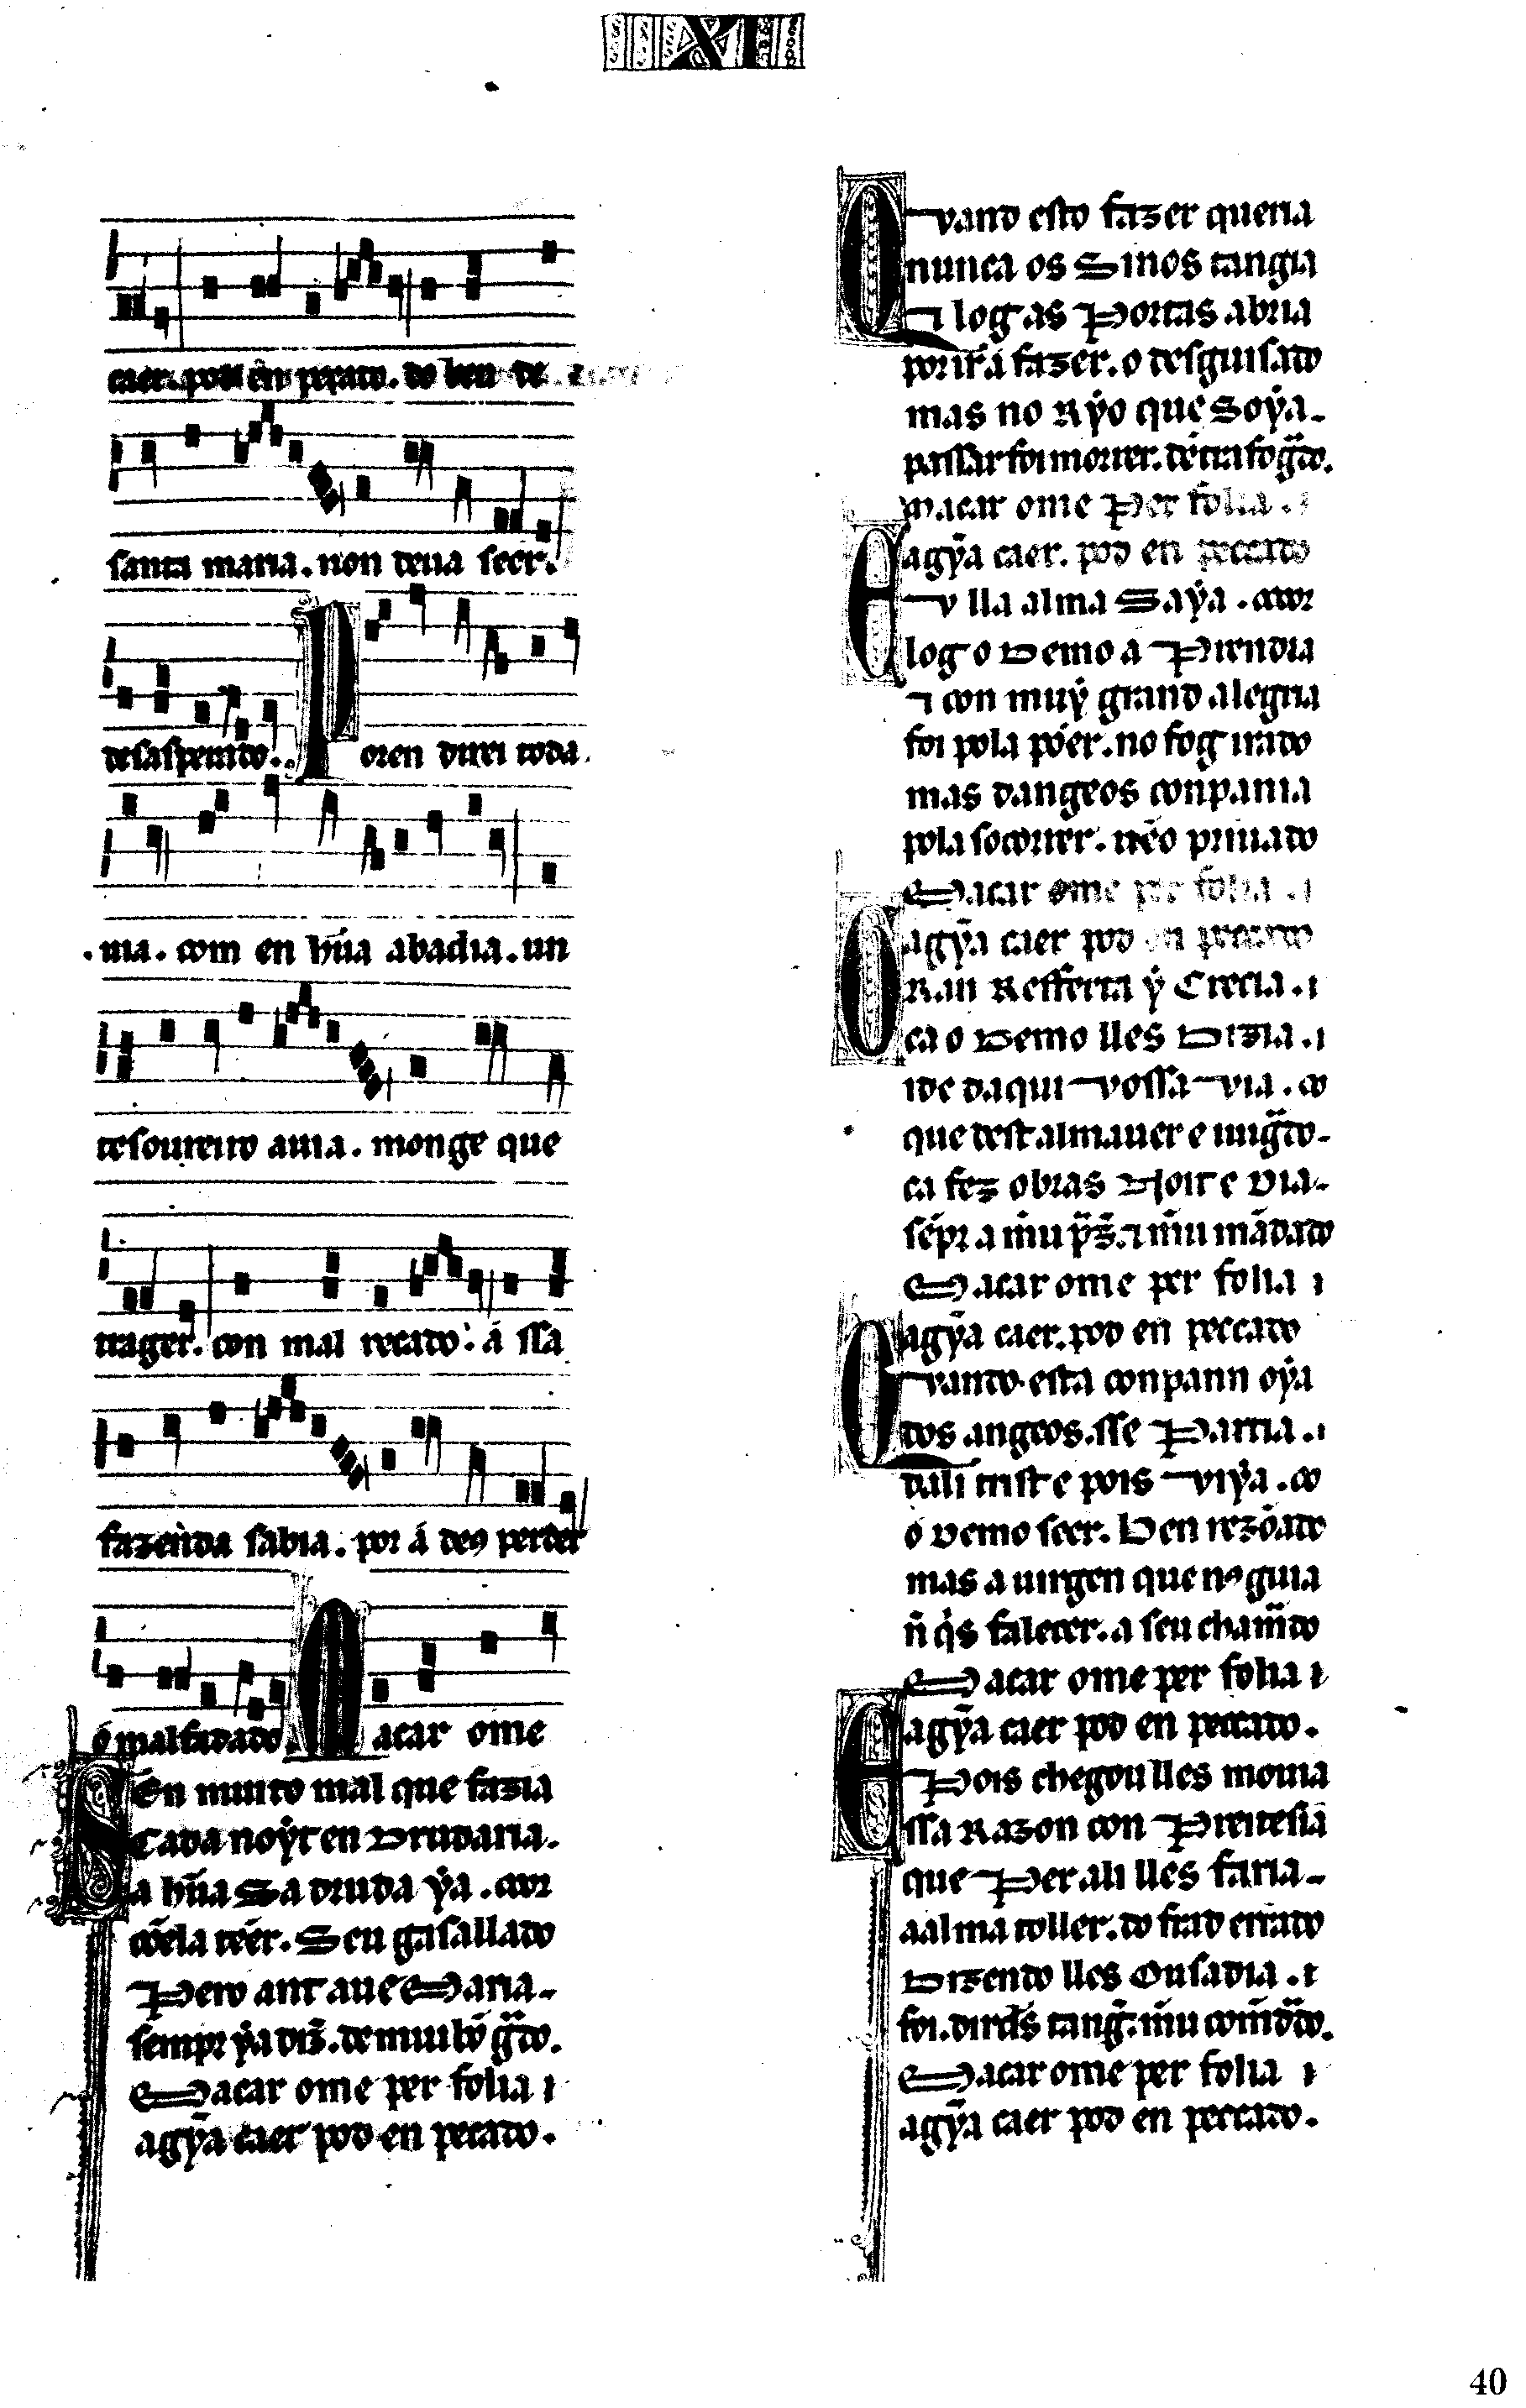 XI
caer. pod en pecado. do ben de
santa maria. non deua seer.
desasperado. Poren direi toda
uia. com en hũa abadia. un
tesoureiro auia. monge que
trager. con mal recado. á ssa
fazenda sabia. por á deꝯ perder
ó malfadado. Macar ome
Sen muito mal que fazia
Cada noẏt en Drudaria.
a hũa Sa druda ẏa. con
cõela tẽer. Seu gasallado
Pero ant aue Maria.
sempr ẏa diz̃. de mui bõ g̃do.
Macar ome per folia ⁊
agỹa caer pod en pecado.
Quand esto fazer queria
nunca os Sinos tangia
⁊ log as Portas abria
por ir á fazer. o desguisado
mas no Rẏo que Soẏa.
passar foi morrer. dẽtrafog̃do.
Macar ome Per folia. ⁊
agỹa caer. pod en peccado
E u lla alma Saẏa.
log o Demo a Prendia
⁊ con muẏ grand alegria
foi pola põer. no fog irado
mas dangeos conpania
pola socorrer. uẽo priuado
Macar ome per folia. ⁊
agỹa caer pod en peccado
Gran Refferta ẏ Crecia. ⁊
ca o Demo lles Dizia. ⁊
ide daqui vossa via.
que dest alma auer e iuig̃do.
ca fez obras Noit e Dia.
sẽpr a miu p̃z̃. ⁊ miu mãdado
Macar ome per folia ⁊
agỹa caer. pod en peccado
Quando esta conpann oẏa
dos angeos. sse Partia. ⁊
dali trist e pois viẏa.
o demo seer. Ben rezõado
mas a uirgen que nꝯ guia
ñ q̇s falecer. a seu cham̃do
Macar ome per folia ⁊
agỹa caer pod en peccado.
E Pois chegou lles mouia
ssa Razon con Preitesia
que Per ali lles faria.
a alma toller. do frad errado
Dizendo lles Ousadia. ⁊
foi. dirdes tang̃. miu com̃d̃do.
Macar ome per folia ⁊
agỹa caer pod en peccado.
40